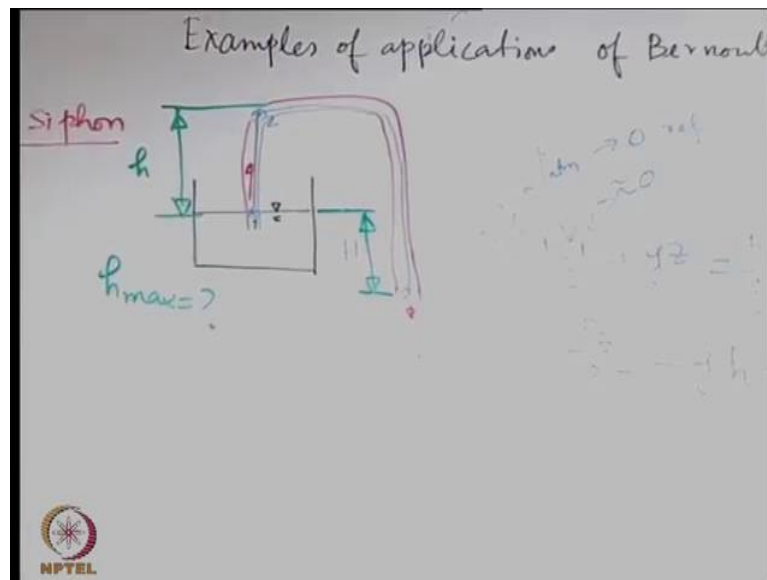 Examples of applications of Bernoul
Siphon
h
2
1
H
hmax = ?
atm → 0 ref
≈ 0
NPTEL